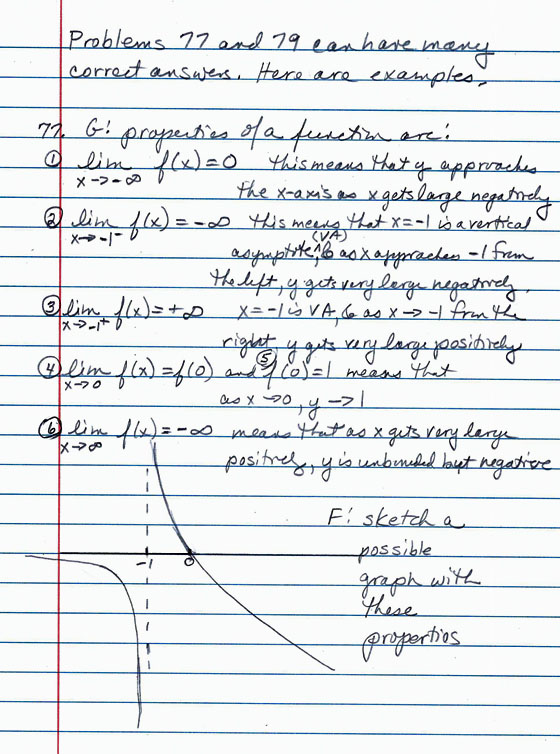 Problems 77 and 79 can have many
correct answers. Here are examples.
77. G: properties of a function are:
① lim f(x) = 0 this means that y approaches
x→-∞ the x-axis as x gets large negatively
② lim f(x) = -∞ this means that x=-1 is a vertical
x→-1⁻ asymptote (VA), & as x approaches -1 from
the left, y gets very large negatively.
③ lim f(x) = +∞ x=-1 is VA, & as x → -1 from the
x→-1⁺ right y gets very large positively
④ lim f(x) = f(0) and ⑤ f(0)=1 means that
x→0 as x→0, y→1
⑥ lim f(x) = -∞ means that as x gets very large
x→∞ positively, y is unbounded but negative
F: sketch a
possible
graph with
these
properties
-1 0